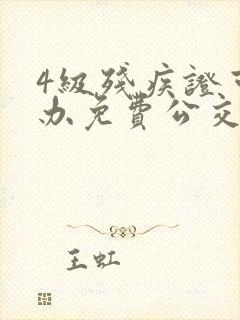 4級殘疾證可
办免費公交
王虹